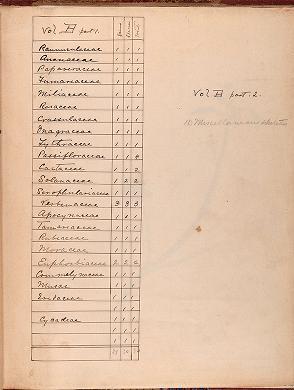 Vol II part 1.
Ranunculaceae 1 1 1
Anonaceae 1 1 1
Papaveraceae 1 1 1
Fumariaceae 1 1 1
Meliaceae 1 1 1
Rosaceae 1 1 1
Crassulaceae 1 1 1
Onagraceae 1 1 1
Lythraceae 1 1 1
Passifloraceae 1 1 4
Cactaceae 1 1 2
Solanaceae 1 2 2
Scrophulariaceae 1 1 1
Verbenaceae 3 3 3
Apocynaceae 1 1 1
1 1 1
Rubiaceae 1 1 1
Moraceae 1 1 1
Euphorbiaceae 2
Commelynaceae 1 1 1
Musae 1 1 1
Iridaceae 1 1 1
1 1 1
Cycadeae 1 1 1
1 1 1
Vol II part 2.
10 Miscellaneous sketches